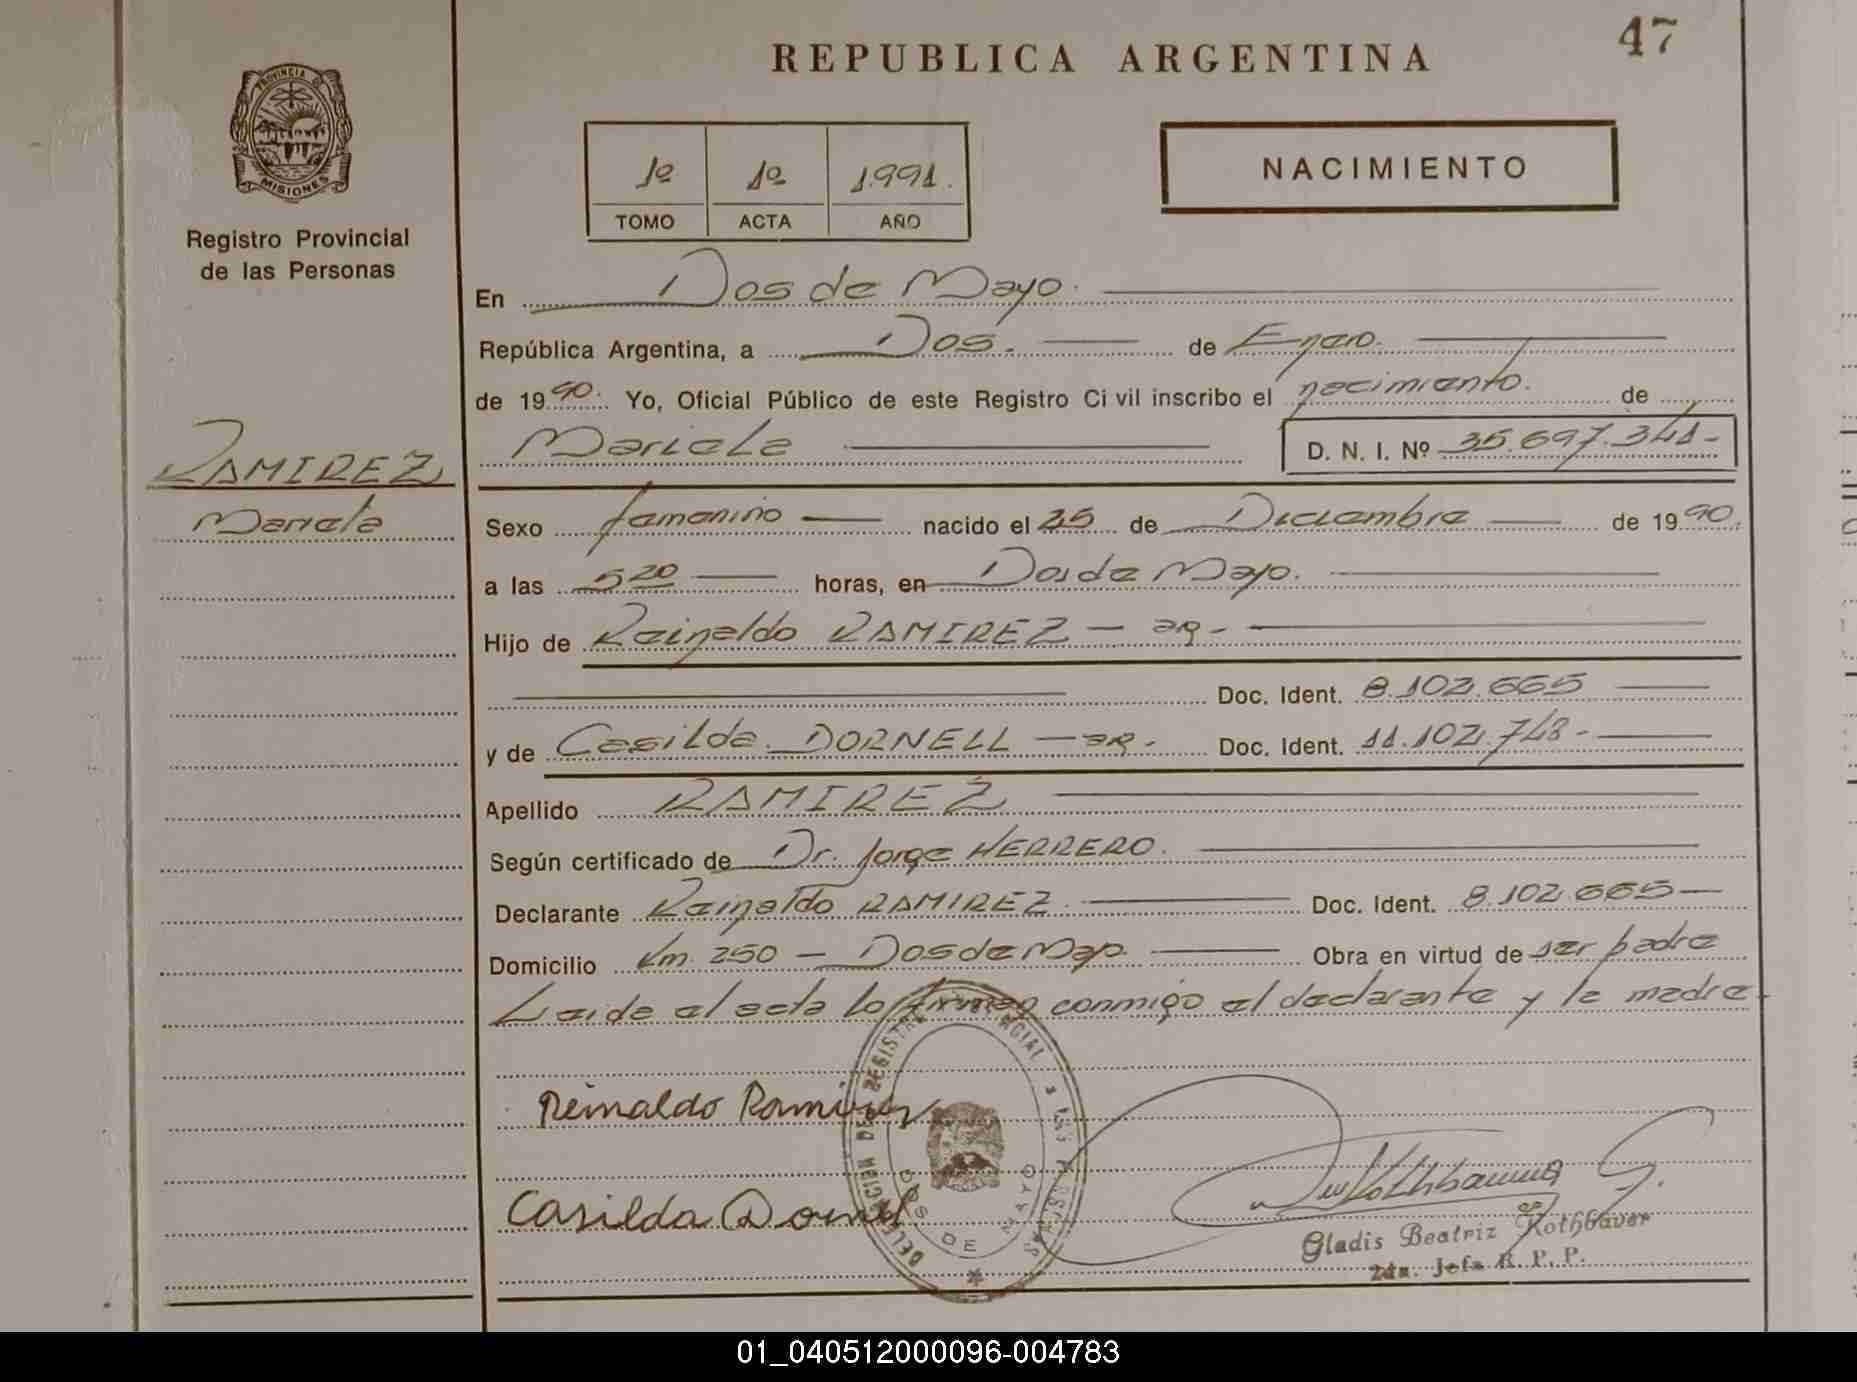 47
REPUBLICA ARGENTINA
PROVINCIA DE
MISIONES
Registro Provincial
de las Personas
1º 1º 1.991.
TOMO ACTA AÑO
NACIMIENTO
En Dos de Mayo.
República Argentina, a Dos. de Enero.
de 1990. Yo, Oficial Público de este Registro Civil inscribo el nacimiento. de
Mariela D. N. I. Nº 35.697.341-
RAMIREZ
Mariela
Sexo femenino nacido el 25 de Diciembre de 1990.
a las 5 20 horas, en Dos de Mayo.
Hijo de Reinaldo RAMIREZ - ar -
Doc. Ident. 8.102.665
y de Casilda DORNELL - ar - Doc. Ident. 11.102.748-
Apellido RAMIREZ
Según certificado de Dr. Jorge HERRERO.
Declarante Reinaldo RAMIREZ Doc. Ident. 8.102.665
Domicilio Km. 250 - Dos de Mayo. Obra en virtud de ser padre
Leida el acta lo firman conmigo el declarante y la madre-
Reinaldo Ramirez
Casilda Dornel
DOS DE MAYO
Rothbauer G.
Gladis Beatriz Rothbauer
2da. Jefa R. P. P.
01_040512000096-004783